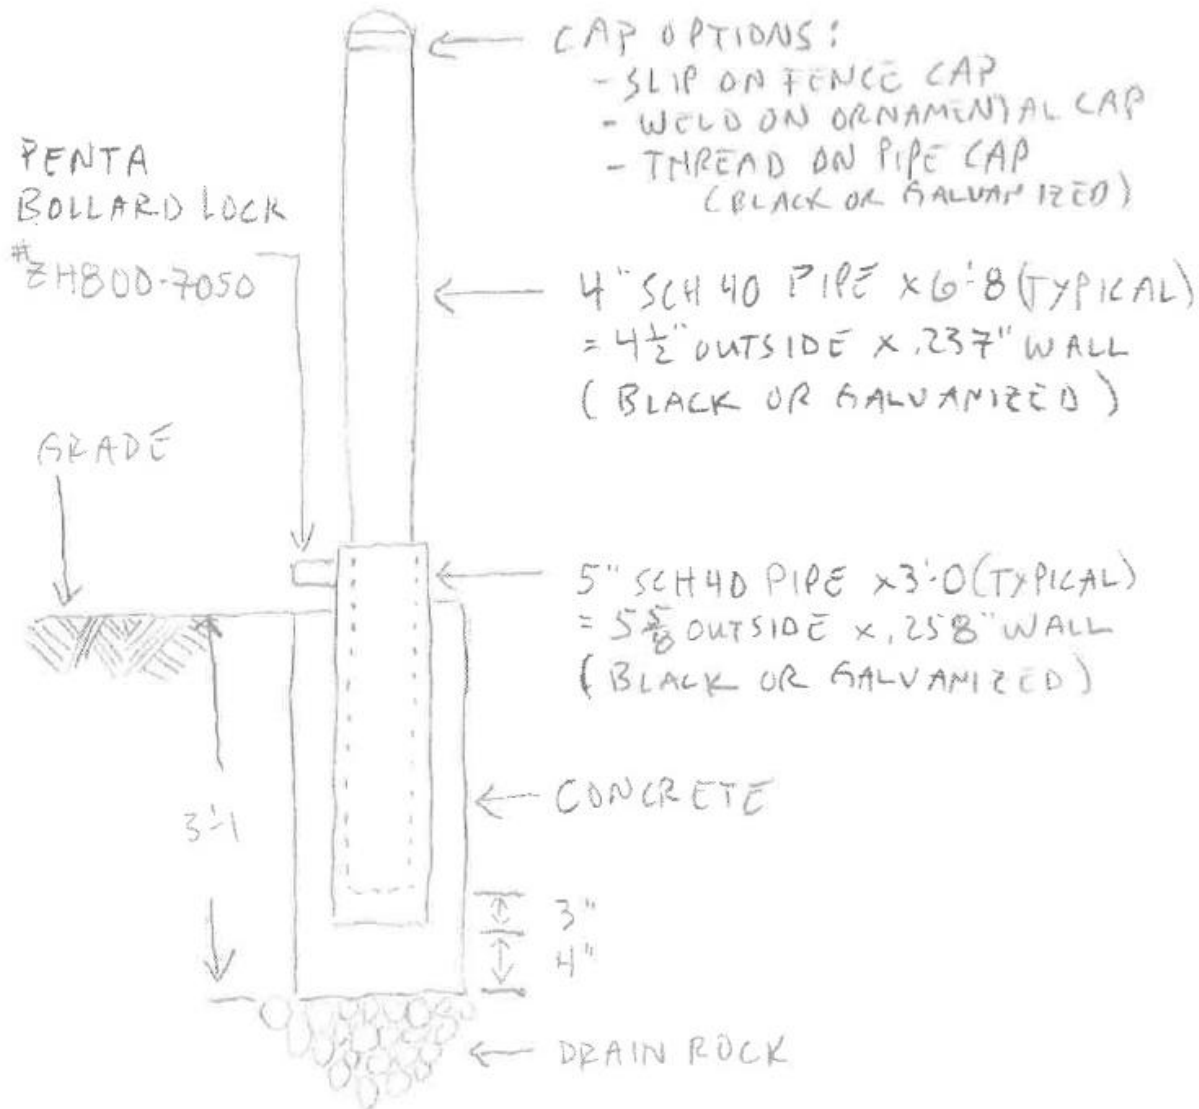 CAP OPTIONS:
- SLIP ON FENCE CAP
- WELD ON ORNAMENTAL CAP
- THREAD ON PIPE CAP
(BLACK OR GALVANIZED)
PENTA
BOLLARD LOCK
#ZH800-7050
4" SCH 40 PIPE x 6'-8 (TYPICAL)
= 4 1/2" OUTSIDE x .237" WALL
(BLACK OR GALVANIZED)
GRADE
5" SCH 40 PIPE x 3'-0 (TYPICAL)
= 5 5/8 OUTSIDE x .258" WALL
(BLACK OR GALVANIZED)
CONCRETE
3'-1
3"
4"
DRAIN ROCK